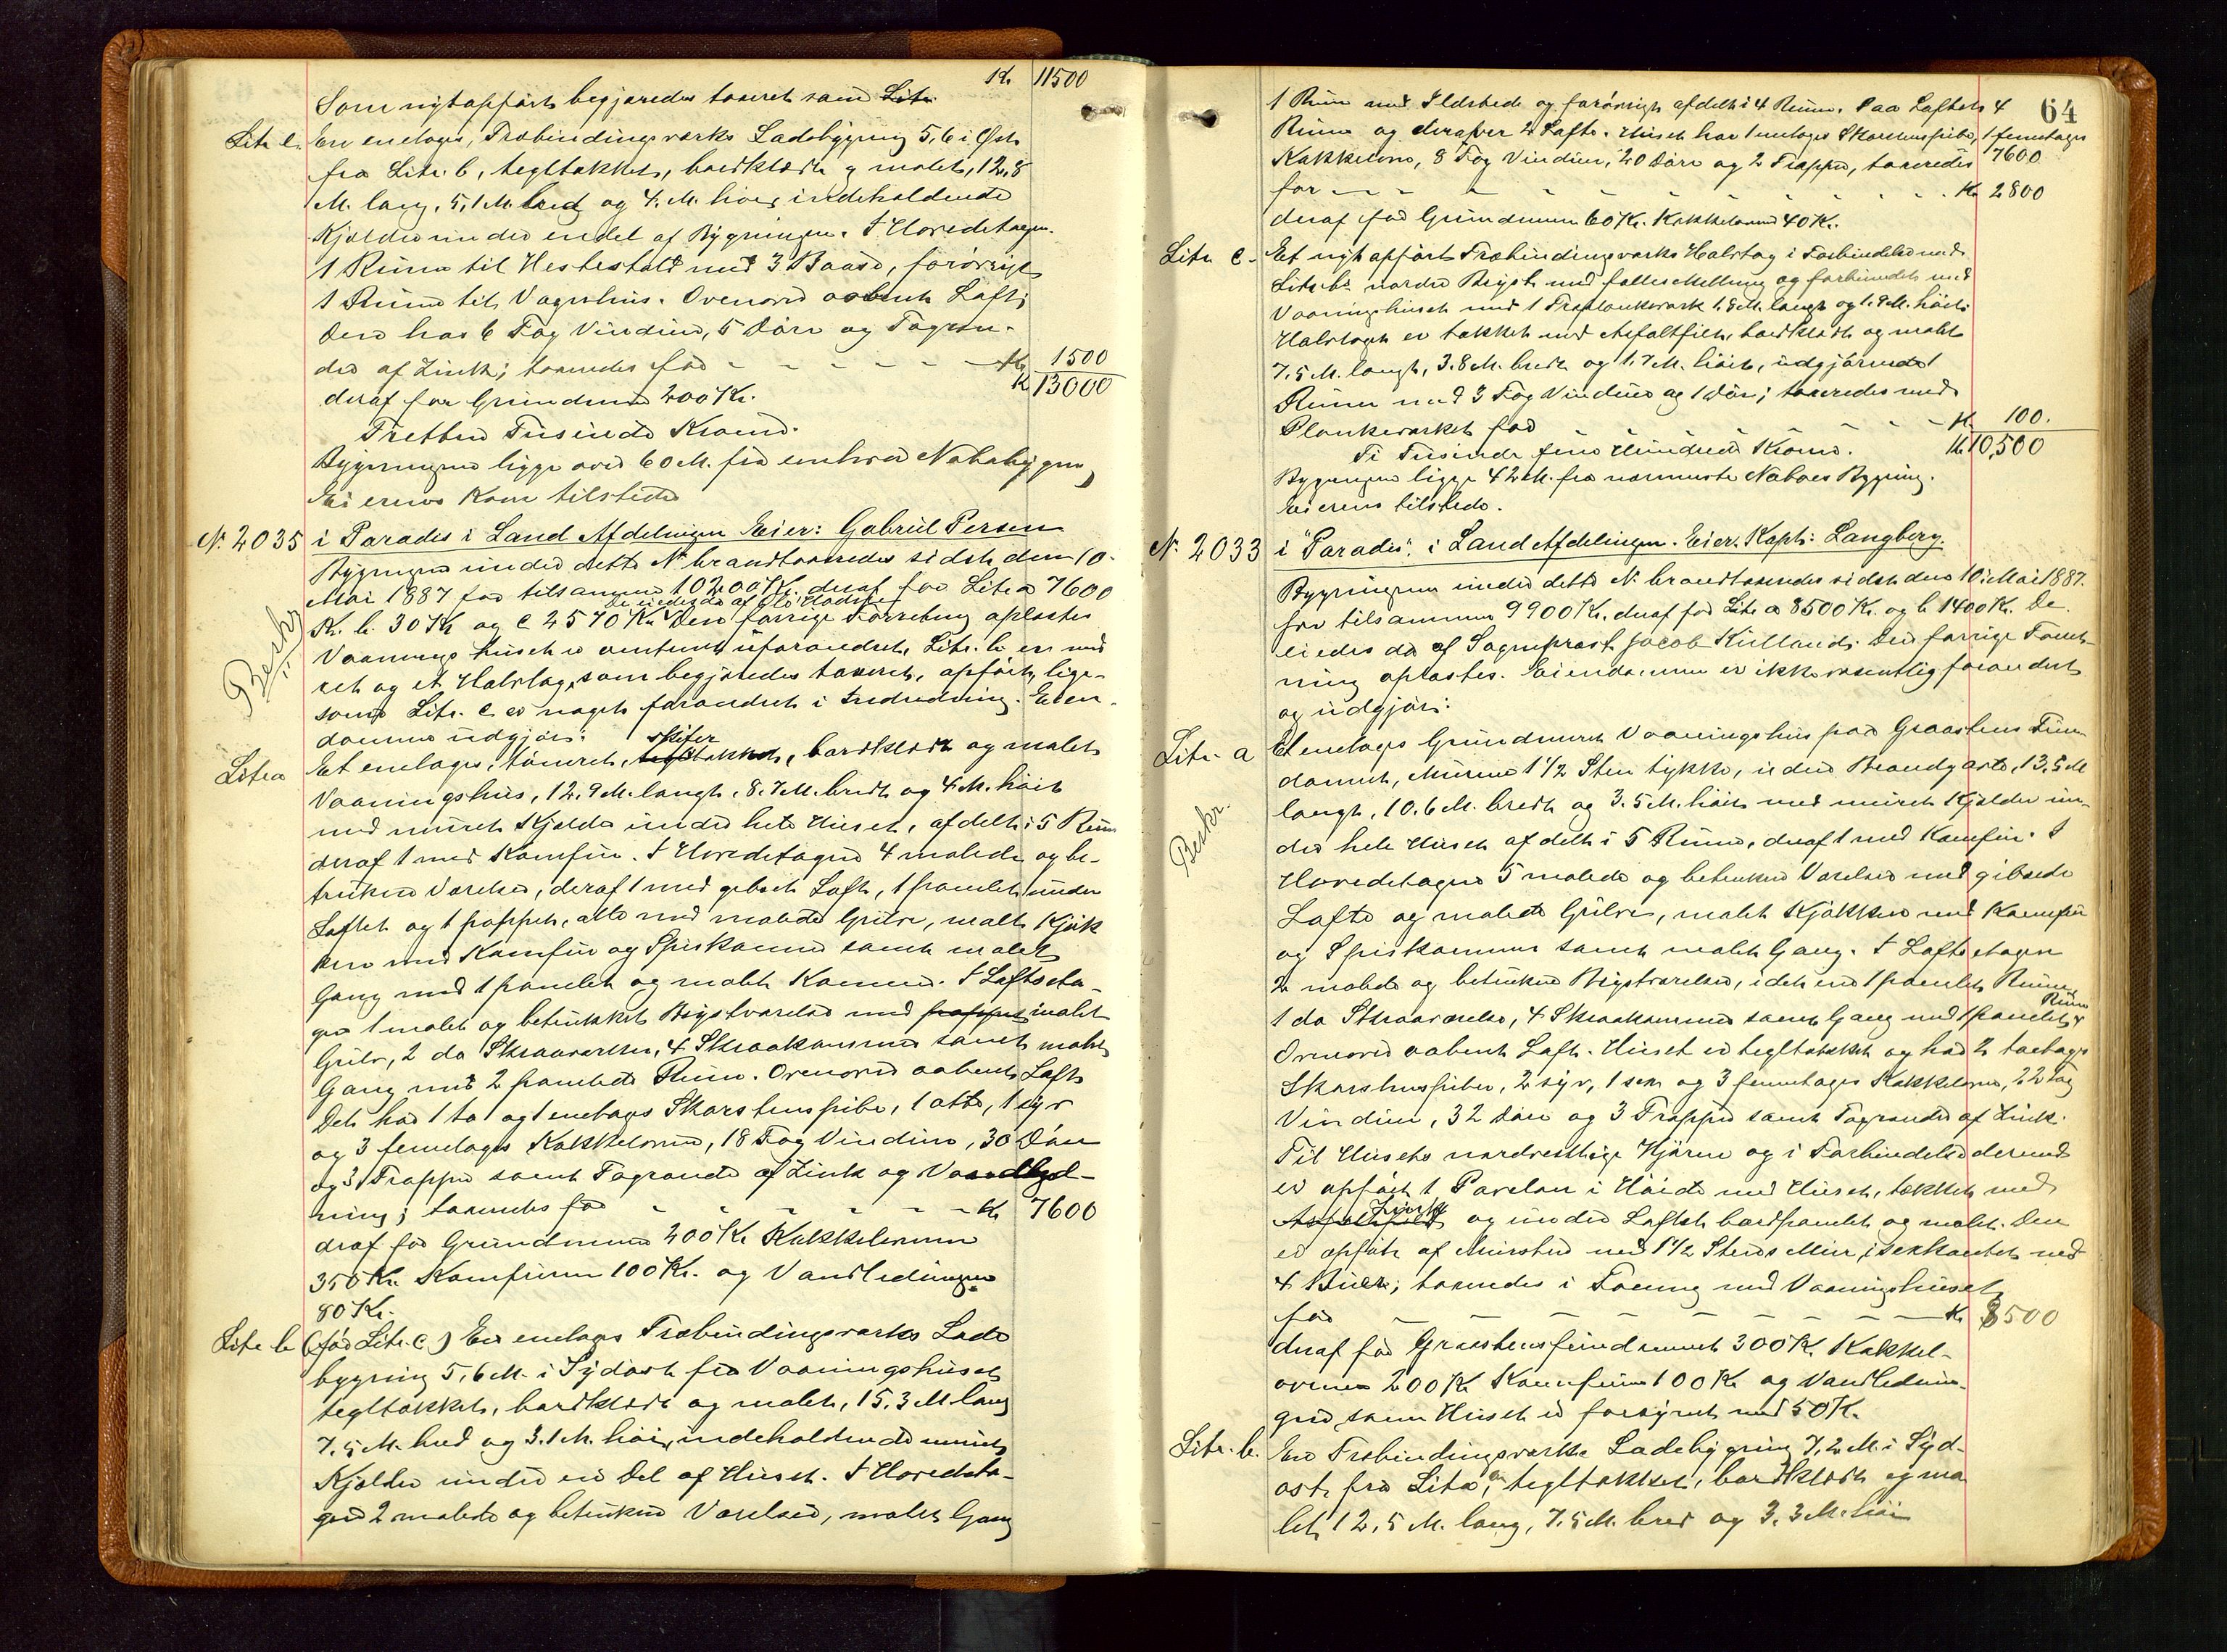 K. 11500
Som nyt opført begjæredes taxeret som Litr.
Litr c. En enetages, Træbindingsværks Ladebygning 5,6 i Øst
fra Litr. b, tegltækket, bordklædt og malet, 12,8
M. lang, 5,1 M. bred og 4. M. høi indeholdende
Kjælder under endel af Bygningen. I Hovedetagen
1 Rum til Hestestald med 3 Baase, forøvrigt
1 Rum til Vognhus. Ovenover aabent Loft;
Den har 6 Fag Vinduer, 5 Døre og Tagren-
der af Zink; taxeredes for - - - - - Kr 1500
deraf for Grundmur 200 Kr. K 13000
Tretten Tusinde Kroner.
Bygningerne ligge over 60 M. fra enhver Nabobygning
Eieren kom tilstede
N. 2035 i Paradis i Land Afdelingen Eier: Gabriel Persen
Bygningerne under dette Nr. brandtaxeredes sidst den 10.
Mai 1887 for tilsammen 10200 Kr. deraf for Litr a 7600
De eiedes da af
Kr. b. 30 Kr og c 2570 Kr. Den forrige Forretning oplæstes
Vaaningshuset er omtrent uforandret, Litr. b er ned
revet og et Halvtag, som begjæredes taxeret, opført, lige-
som Litr. c er noget forandret i Indredning. Eien-
Beskr.
dommen udgjør:
skifer
Litr a Et enetages, tømret, tegltækket, bordklædt og malet
Vaaningshus, 12,9 M. langt, 8,7 M. bredt og 4 M. høit
med muret Kjælder under hele Huset, afdelt i 5 Rum
deraf 1 med Komfur. I Hovedetagen 4 malede og be-
trukne Værelser, deraf 1 med gibset Loft, 1 panelet under
Loftet og 1 pappet, alle med malede Gulve, malt Kjøk
ken med Komfur og Spiskammer samt malet
Gang med 1 panelet og malt Kammer. I Loftseta-
gen 1 malet og betrukket Brystværelse med pappet malet
Gulv, 2 do Skraaværelser, 4 Skraakammere samt malet
Gang med 2 panelede Rum. Ovenover aabent Loft
Det har 1 to og 1 enetages Skorstenspibe, 1 otte, 1 syv
og 3 femetages Kakkelovne, 18 Fag Vinduer, 30 Døre
og 3 Trapper samt Tagrender af Zink og Vandled-
ning; taxeredes for - - - - - - Kr 7600
deraf for Grundmuren 200 Kr. Kakkelovnene
350 Kr. Komfuren 100 Kr. og Vandledningen
80 Kr.
Litr b (før Litr. c) En enetages Træbindingsværks Lade
bygning 5,6 M. i Sydost fra Vaaningshuset
tegltækket, bordklædt og malet, 15,3 M lang
7,5 M. bred og 3.1 M. høi, indeholdende muret
Kjælder under en Del af Huset. I Hovedeta-
gen 2 malede og betrukne Værelser, malet Gang
64
1 Rum med Ildsted og forøvrigt afdelt i 4 Rum. Paa Loftet 4
Rum og derover 2 Lofte. Huset har 1 enetages Skorstenspibe, 1 femetages
Kakkelovn, 8 Fag Vinduer, 20 Døre og 2 Trapper, taxeredes 7600
for - - - - - - - - - - - Kr 2800
deraf for Grundmuren 60 Kr. Kakkelovnen 40 Kr.
Litr c. Et nyt opført Træbindingsværks Halvtag i Forbindelse med
Litr b's nordre Bryst med fælles Mellemv og forbundet med
Vaaningshuset med 1 Træplankeværk 1,8 M. langt og 1.9 M. høit.
Halvtaget er tækket med Asfaltfilt, bordklædt og malet
7,5 M. langt, 3.8 M. bredt og 1.7 M. høit, udgjørende 1
Rum med 3 Fag Vinduer og 1 Dør; taxeredes med
Plankeværket for - - - - - - Kr. 100.
Ti Tusinde fem Hundrede Kroner. Kr 10,500
Bygningerne ligge 42 M. fra nærmeste Naboes Bygning.
Eieren tilstede.
N. 2033 i "Paradis" i Land Afdelingen. Eier. Kapt: Langberg.
Bygningerne under dette Nr. brandtaxeredes sidst den 10. Mai 1887.
for tilsammen 9900 Kr. deraf for Litr a 8500 Kr. og b 1400 Kr. De
eiedes da af Sogneprest Jacob Kielland. Den forrige Forret-
ning oplæstes. Eiendommen er ikke væsentlig forandret
og udgjør:
Litr a Et enetages Grundmuret Vaaningshus paa Graastens Fun
dament, Murene 1 1/2 Sten tykke, uden Brandgavle, 13,5 M
langt, 10.6 M. bredt og 3.5 M. høit med muret Kjælder un-
Beskr.
der hele Huset afdelt i 5 Rum, deraf 1 med Komfur. I
Hovedetagen 5 malede og betrukne Værelser med gibsede
Lofte og malede Gulve, malet Kjøkken med Komfur
og Spiskammer samt malet Gang. I Loftsetagen
2 malede og betrukne Brystværelser, i det ene 1 panelet Rum,
1 do Skraaværelse, 4 Skraakammere samt Gang med 1 panelet Rum
Ovenover aabent Loft. Huset er tegltækket og har 2 toetages
Skorstenspiber, 2 syv, 1 sex og 3 femetages Kakkelovne, 22 Fag
Vinduer, 32 Døre og 3 Trapper samt Tagrender af Zink.
Til Husets nordvestlige Hjørne og i Forbindelse dermed
er opført 1 Pavelon i Høide med Huset, tækket med
Zink
Asfaltfilt og under Loftet bordpanelet og malet. Den
er opført af Mursten med 1 1/2 Stens Mur, i sexkantet med
4 Buer; taxeredes i Forening med Vaaningshuset
for - - - - - - - - - Kr 8500
deraf for Graastensfundamentet 300 Kr. Kakkel-
ovnene 200 Kr. Komfuren 100 Kr og Vandlednin-
gen som Huset er forsynet med 50 Kr.
Litr. b. En Træbindingsværks Ladebygning 7,2 M. i Syd-
ost fra Litr a, tegltækket, bordklædt og ma
let, 12,5 M. lang, 7,5 M. bred og 3.3 M. høi